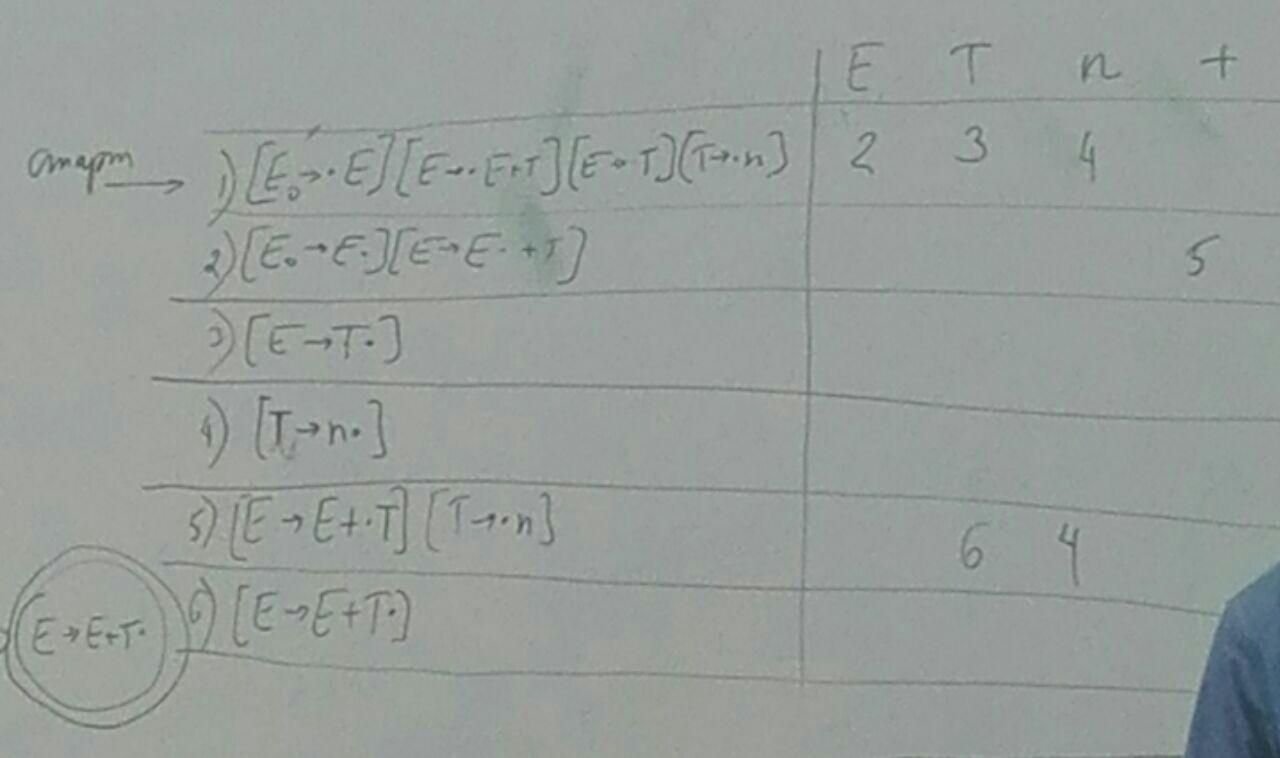 E T n +
старт → 1) [E₀→·E][E→·E+T][E→·T][T→·n] 2 3 4
2) [E₀→E·][E→E·+T] 5
3) [E→T·]
4) [T→n·]
5) [E→E+·T] [T→·n] 6 4
6) [E→E+T·]
E→E+T·